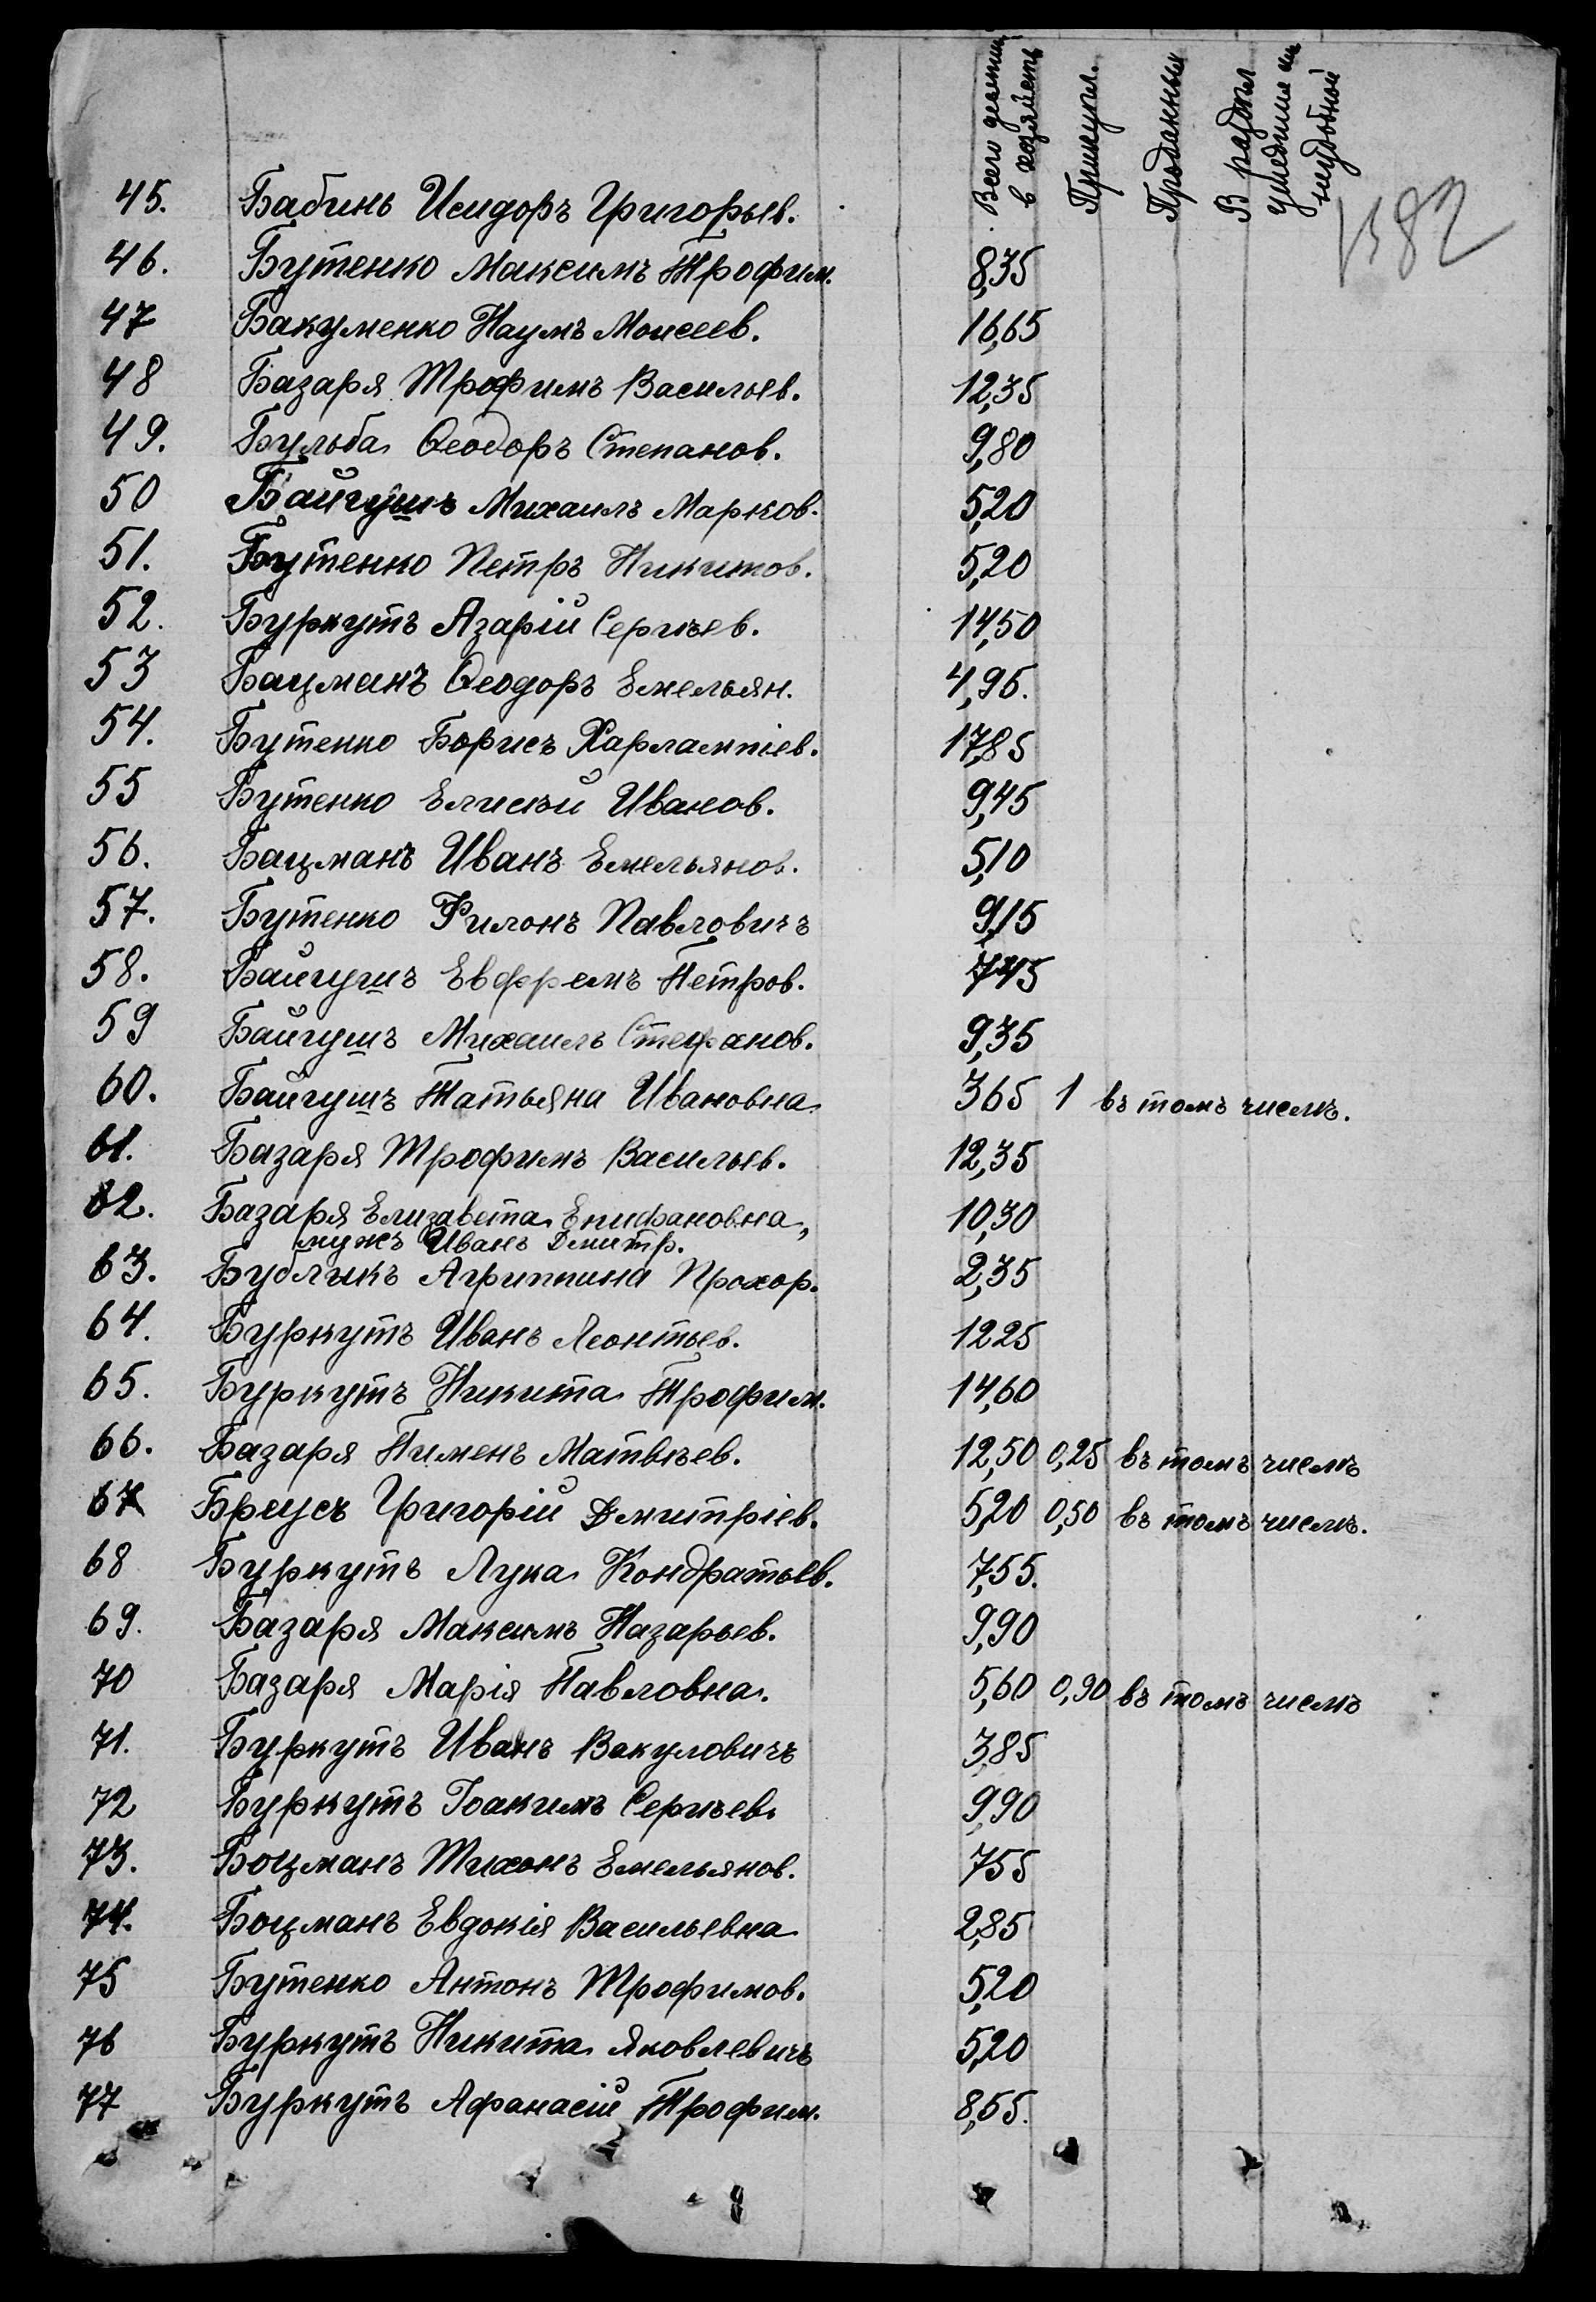 Всего десятин
в хозяйстве
Прикупл.
Проданных
В раздел
ушедших ил
неудобной
45. Бабинъ Исидоръ Григорьев.
46. Бутенко Максимъ Трофим. 8,35
47 Бакуменко Наумъ Моисеев. 16,65
48 Базаря Трофимъ Васильев. 12,35
49. Бульба Ѳеодоръ Степанов. 9,80
50 Байгушъ Михаилъ Марков. 5,20
51. Бутенко Петръ Никитов. 5,20
52. Буркутъ Азарій Сергѣев. 14,50
53 Бацманъ Ѳеодоръ Емельян. 4,95.
54. Бутенко Борисъ Харлампіев. 17,85
55 Бутенко Елисѣй Иванов. 9,45
56. Бацманъ Иванъ Емельянов. 5,10
57. Бутенко Филонъ Павловичъ 9,15
58. Байгушъ Евфремъ Петров. 7,45
59 Байгушъ Михаилъ Стефанов. 9,35
60. Байгушъ Татьяна Ивановна 3,65 1 въ томъ числѣ.
61. Базаря Трофимъ Васильев. 12,35
62. Базаря Елизавета Епифановна, 10,30
мужъ Иванъ Дмитр.
63. Бубликъ Агриппина Прохор. 2,35
64. Буркутъ Иванъ Леонтьев. 12,25
65. Буркутъ Никита Трофим. 14,60
66. Базаря Пименъ Матвѣев. 12,50 0,25 въ томъ числѣ
67 Бреусъ Григорій Дмитріев. 5,20 0,50 въ томъ числѣ.
68 Буркутъ Лука Кондратьев. 7,55.
69. Базаря Максимъ Назарьев. 9,90
70 Базаря Марія Павловна. 5,60 0,90 въ томъ числѣ
71. Буркутъ Иванъ Вакуловичъ 3,85
72 Буркутъ Іоакимъ Сергѣев. 9,90
73. Боцманъ Тихонъ Емельянов. 7,55
74. Боцманъ Евдокія Васильевна 2,85
75 Бутенко Антонъ Трофимов. 5,20
76 Буркутъ Никита Яковлевичъ 5,20
77 Буркутъ Афанасій Трофим. 8,55.